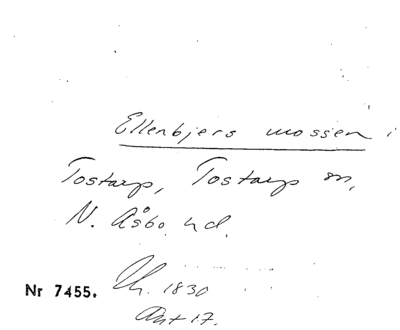 Ellenbjers mossen i
Tostarp, Tostarp sn,
N. Åsbo hd.
Nr 7455. Uh. 1830
Akt 17.